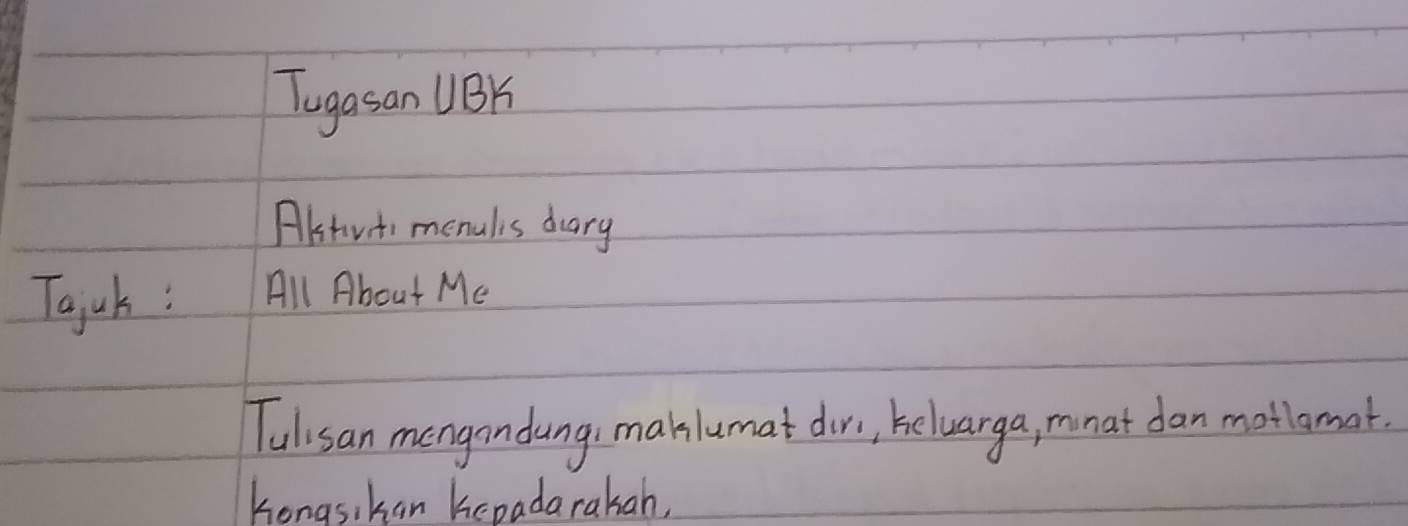 Tugasan UBK
Aktiviti menulis diary
Tajuk : All About Me
Tulisan mengandungi maklumat diri, keluarga, minat dan matlamat.
Kongsikan kepada rakan,